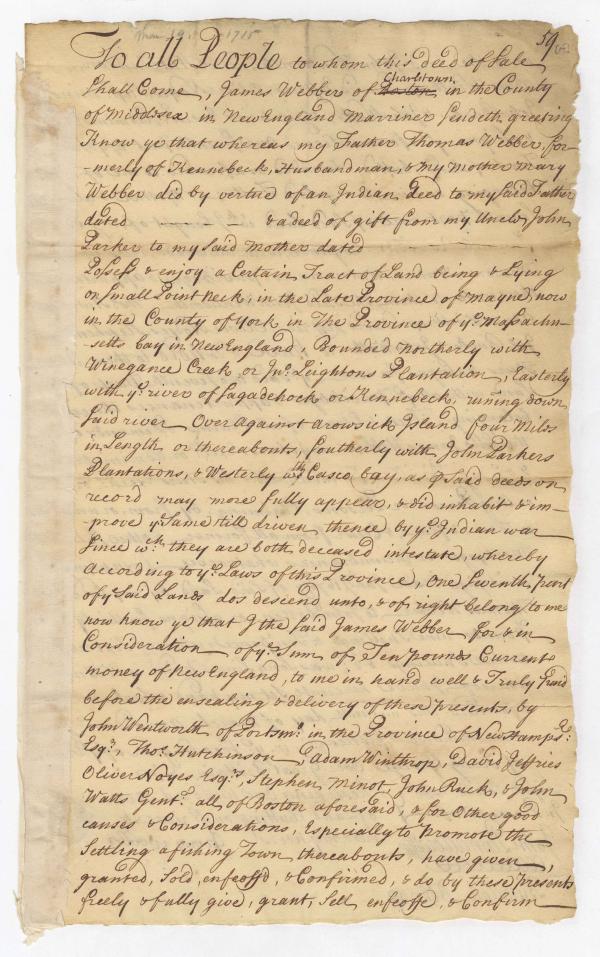 1715
59
To all People to whom this deed of Sale
Charlstown
Shall Come, James Webber of Boston in the County
of Middlesex in New England Marriner Sendeth greeting
Know ye that whereas my Father Thomas Webber, for-
-merly of Kennebeck, Husbandman, & my Mother Mary
Webber did by vertue of an Indian deed to my Said Father
dated — — — & a deed of gift from my Uncle John
Parker to my Said Mother dated
Possess & enjoy a Certain Tract of Land being & Lying
on Small Point Neck, in the Late Province of Mayne, now
in the County of York in The Province of ye Massachu-
-setts bay in New England, Bounded Northerly with
Winegance Creek or Jno. Leightons Plantation, Easterly
with ye river of Sagadehock or Kennebeck, runing down
Said river Over Against Arowsick Island four Miles
in Length or thereabouts, Southerly with John Parkers
Plantations, & Westerly wth Casco bay, as p Said deeds on
record may more fully appear, & did inhabit & im-
-prove ye Same till driven thence by ye Indian war
Since wch they are both deceased intestate, whereby
According to ye Laws of this Province, One Seventh part
of ye Said Lands dos descend unto, & of right belong to me
now know ye that I the Said James Webber for & in
Consideration of ye Sum of Ten pounds Current
money of New England, to me in hand well & Truly paid
before the ensealing & delivery of these Presents, by
John Wentworth of Portsmo. in the Province of New Hampsre.
Esqr, Thos. Hutchinson, Adam Winthrop, David Jeffries
Oliver Noyes Esqrs, Stephen Minot, John Ruck, & John
Watts Gentn. all of Boston aforesaid, & for Other good
causes & Considerations, Especially to Promote the
Settling a fishing Town thereabouts, have given,
granted, Sold, enfeoff'd, & Confirmed, & do by these Presents
freely & fully give, grant, Sell, enfeoffe, & Confirm